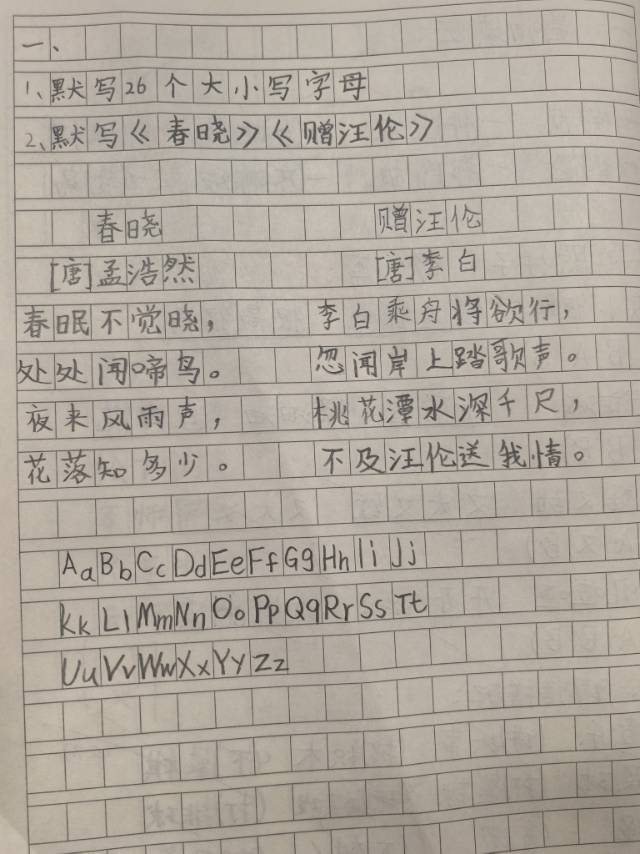 一、
1、默写26个大小写字母
2、默写《春晓》《赠汪伦》
春晓
[唐]孟浩然
春眠不觉晓，
处处闻啼鸟。
夜来风雨声，
花落知多少。
赠汪伦
[唐]李白
李白乘舟将欲行，
忽闻岸上踏歌声。
桃花潭水深千尺，
不及汪伦送我情。
Aa Bb Cc Dd Ee Ff Gg Hh Ii Jj
Kk Ll Mm Nn Oo Pp Qq Rr Ss Tt
Uu Vv Ww Xx Yy Zz